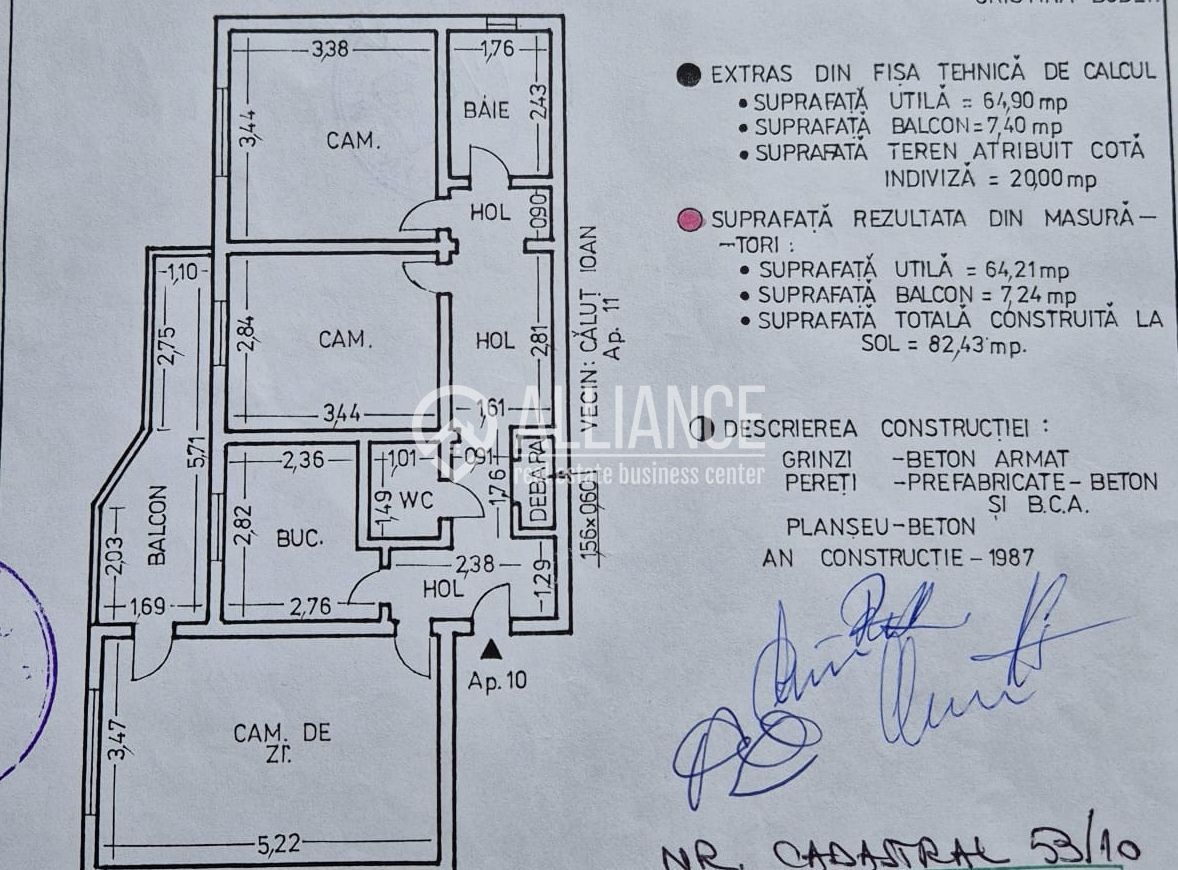 3,38
1,76
3,44
CAM.
BAIE
2,43
HOL
0,90
1,10
2,75
2,84
CAM.
HOL
2,81
3,44
1,61
VECIN: CĂLUȚ IOAN
Ap. 11
5,71
BALCON
2,03
1,69
2,36
2,82
BUC.
2,76
1,01
1,49
WC
0,91
1,76
DEBARA
1,56x0,60
2,38
HOL
1,29
Ap.10
3,47
CAM. DE
ZI.
5,22
EXTRAS DIN FIȘA TEHNICĂ DE CALCUL
• SUPRAFAȚĂ UTILĂ = 64,90 mp
• SUPRAFAȚĂ BALCON = 7,40 mp
• SUPRAFATĂ TEREN ATRIBUIT COTĂ
INDIVIZĂ = 20,00 mp
SUPRAFAȚĂ REZULTATA DIN MASURĂ–
–TORI :
• SUPRAFAȚĂ UTILĂ = 64,21 mp
• SUPRAFAȚĂ BALCON = 7,24 mp
• SUPRAFAȚĂ TOTALĂ CONSTRUITĂ LA
SOL = 82,43 mp.
DESCRIEREA CONSTRUCȚIEI :
GRINZI -BETON ARMAT
PEREȚI -PREFABRICATE - BETON
ȘI B.C.A.
PLANȘEU-BETON
AN CONSTRUCTIE - 1987
NR. CADASTRAL 53/10
ALLIANCE
real estate business center